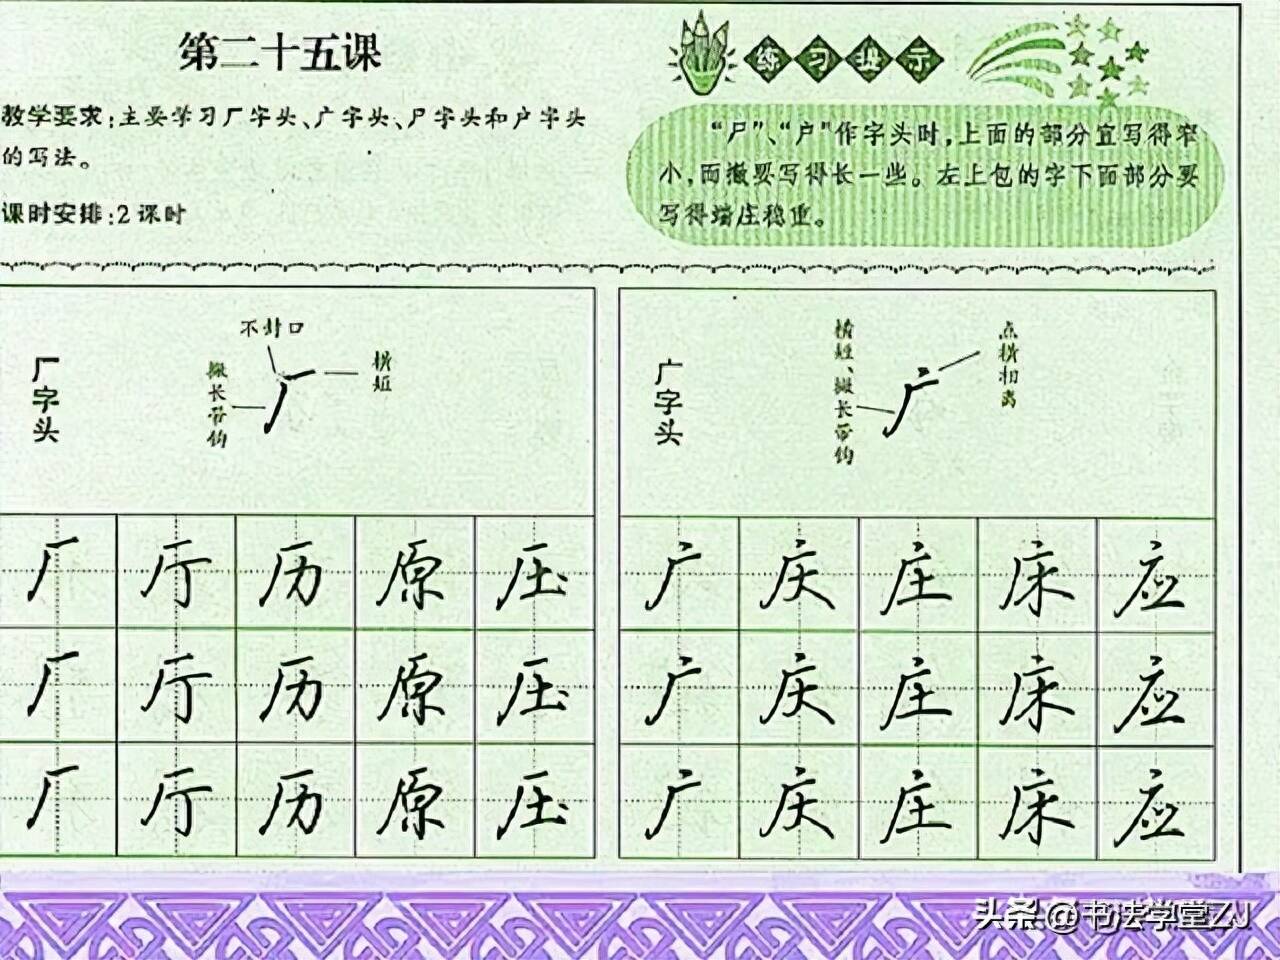 第二十五课
教学要求:主要学习厂字头、广字头、尸字头和户字头
的写法。
课时安排:2课时
练习提示
“尸”、“户”作字头时,上面的部分宜写得窄
小,而撇要写得长一些。左上包的字下面部分要
写得端庄稳重。
厂字头
不封口
撇长带钩
横短
广字头
横短、撇长带钩
点横相离
厂 厅 历 原 压
厂 厅 历 原 压
厂 厅 历 原 压
广 庆 庄 床 应
广 庆 庄 床 应
广 庆 庄 床 应
头条@书法学堂ZJ